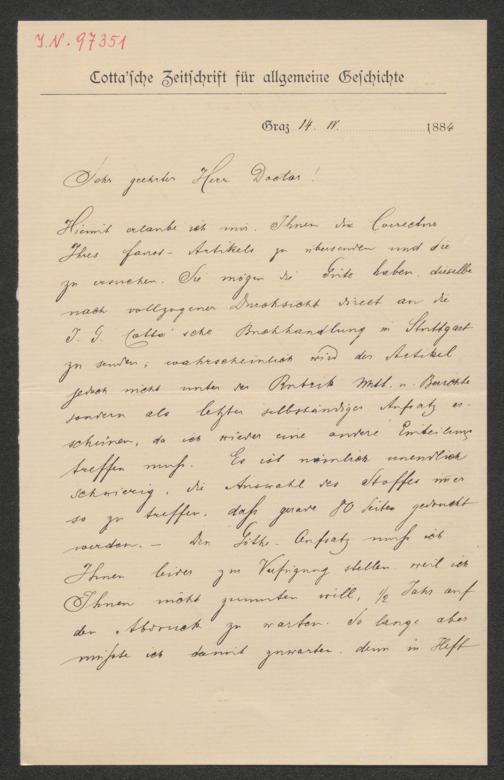 I.N. 97351
Cotta'sche Zeitschrift für allgemeine Geschichte
Graz 14. IV. 1884
Sehr geehrter Herr Doctor!
Hiemit erlaube ich mir, Ihnen die Correctur
Ihres Faust-Artikels zu übersenden und Sie
zu ersuchen, Sie mögen die Güte haben, dieselbe
nach vollzogener Durchsicht direct an die
J. G. Cotta'sche Buchhandlung in Stuttgart
zu senden; wahrscheinlich wird der Artikel
jedoch nicht unter der Rubrik Mitt. u. Berichte
sondern als letzter selbständiger Aufsatz er-
scheinen, da ich wieder eine andere Einteilung
treffen muß. Es ist nämlich unendlich
schwierig, die Auswahl des Stoffes immer
so zu treffen, daß gerade 80 Seiten gedruckt
werden. – Den Göthe-Aufsatz muß ich
Ihnen leider zur Verfügung stellen, weil ich
Ihnen nicht zumuten will, 1/2 Jahr auf
den Abdruck zu warten. So lange aber
müßte ich damit zuwarten, denn in Heft